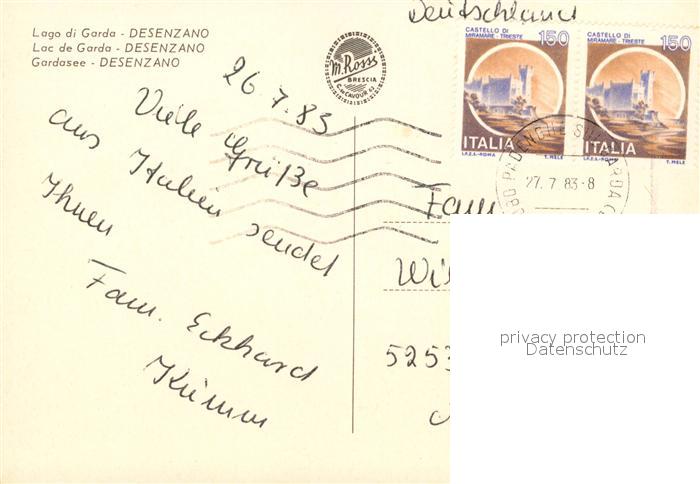 Lago di Garda - DESENZANO
Lac de Garda - DESENZANO
Gardasee - DESENZANO
M. Rossi
BRESCIA
C. CAVOUR 62
Deutschland
CASTELLO DI
MIRAMARE - TRIESTE
150
ITALIA
I.P.Z.S. - ROMA
T. MELE
CASTELLO DI
MIRAMARE - TRIESTE
150
ITALIA
I.P.Z.S. - ROMA
T. MELE
27. 7 83-8
26.7.83
Viele Grüße
aus Italien sendet
Ihnen
Fam. Eckhard
Kümm
Fam
Wil
5253
privacy protection
Datenschutz